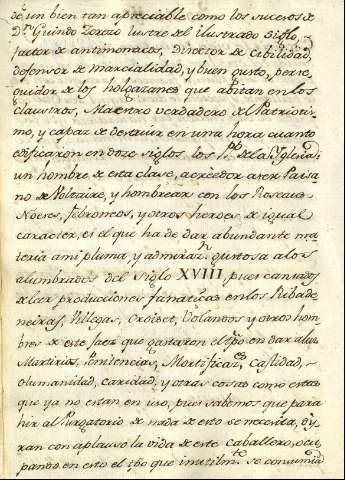 de un bien tan apreciable como los sucesos de
Dn. Guindo Zerezo lustre del ilustrado Siglo,
factor de antimonacos, Director de Cibilidad,
defensor de marcialidad, y buen gusto, perse-
guidor de los holgazanes que abitan en los
claustros, Maestro verdadero del Patriotis-
mo, y capaz de destruir en una hora cuanto
edificaron en doze siglos, los PP. de la Iglesia;
un hombre de esta clase, acreedor a ser Paisa-
no de Voltaire, y hombrear con los Roseaus
Noeses, febroneos, y otros heroes de igual
caracter, es el que ha de dar abundante ma-
teria a mi pluma, y admirazn. gustosa a los
alumbrados del Siglo XVIII, pues cansados
de leer producciones fanaticas en los Ribade
neiras, Villegas, Croiset, Volandos y otros hom
bres de este jaez que gastaron el tpo en dar a luz
Martirios, Penitencias, Mortificaz.es, Castidad,
olumanidad, caridad, y otras cosas como estas
que ya no estan en uso, pues sabemos que para
hir al Purgatorio de nada de esto se necesita, oy
ran con aplauso la vida de este caballero, ocu
pando en esto el tpo que inutilmte. se consumia